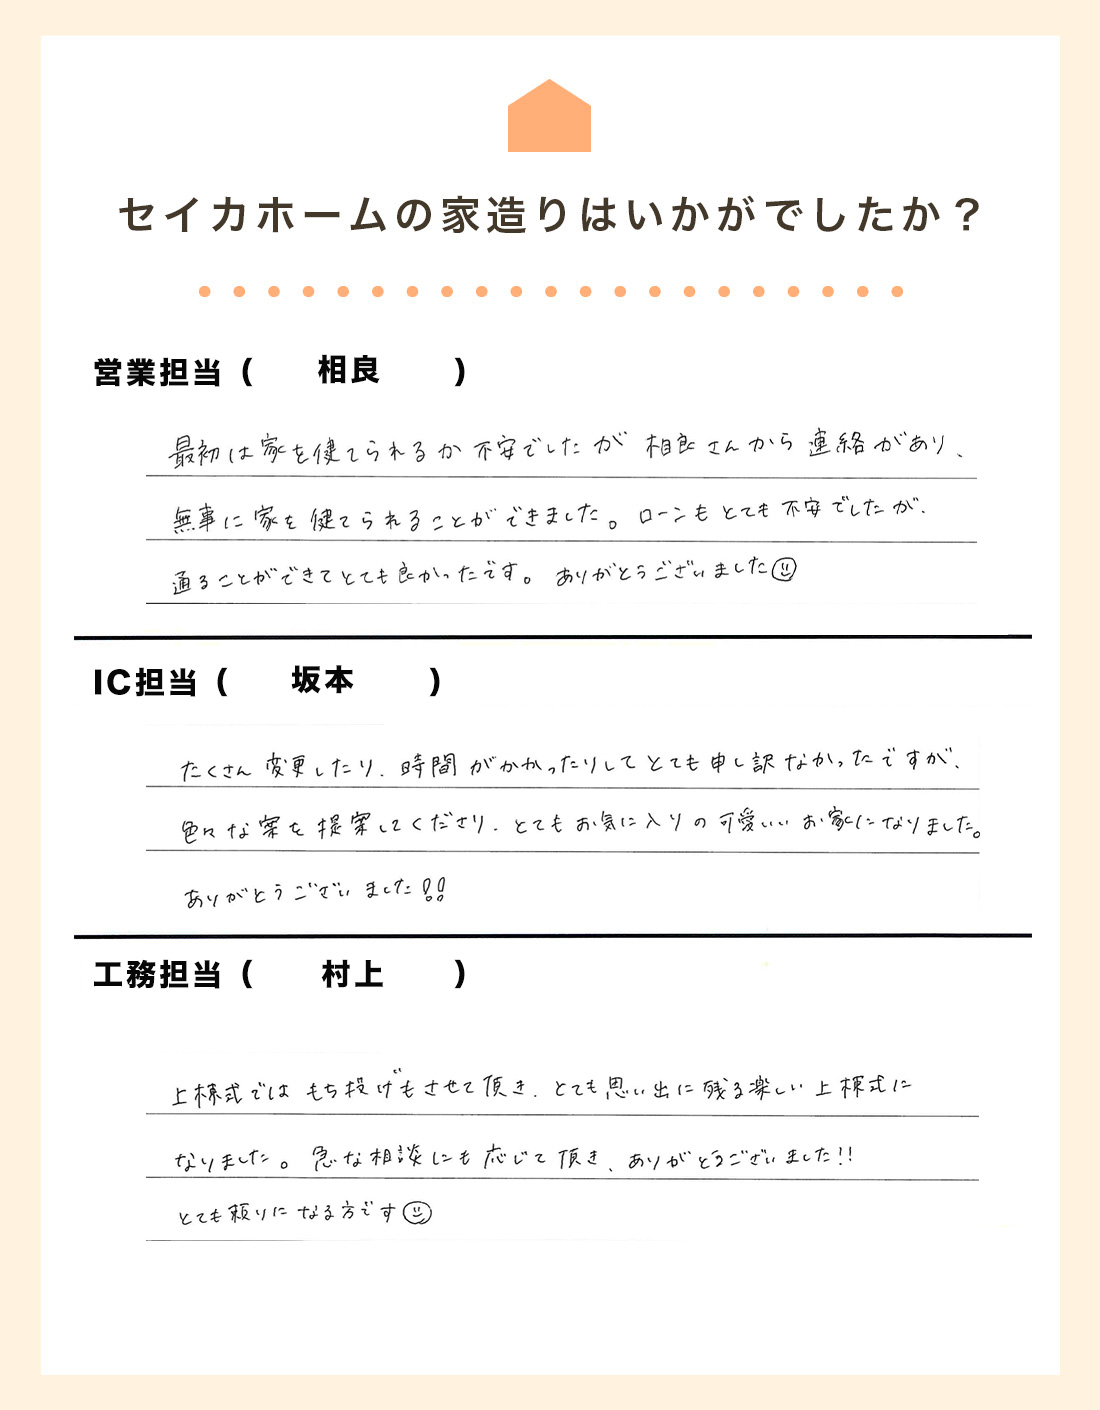 セイカホームの家造りはいかがでしたか？
営業担当（　相良　）
最初は家を健てられるか不安でしたが 相良さんから連絡があり、
無事に家を健てられることができました。ローンもとても不安でしたが、
通ることができてとても良かったです。ありがとうございました☺
IC担当（　坂本　）
たくさん変更したり、時間がかかったりしてとても申し訳なかったですが、
色々な案を提案してくださり、とてもお気に入りの可愛いいお家になりました。
ありがとうございました!!
工務担当（　村上　）
上棟式ではもち投げもさせて頂き、とても思い出に残る楽しい上棟式に
なりました。急な相談にも応じて頂き、ありがとうございました!!
とても頼りになる方です☺